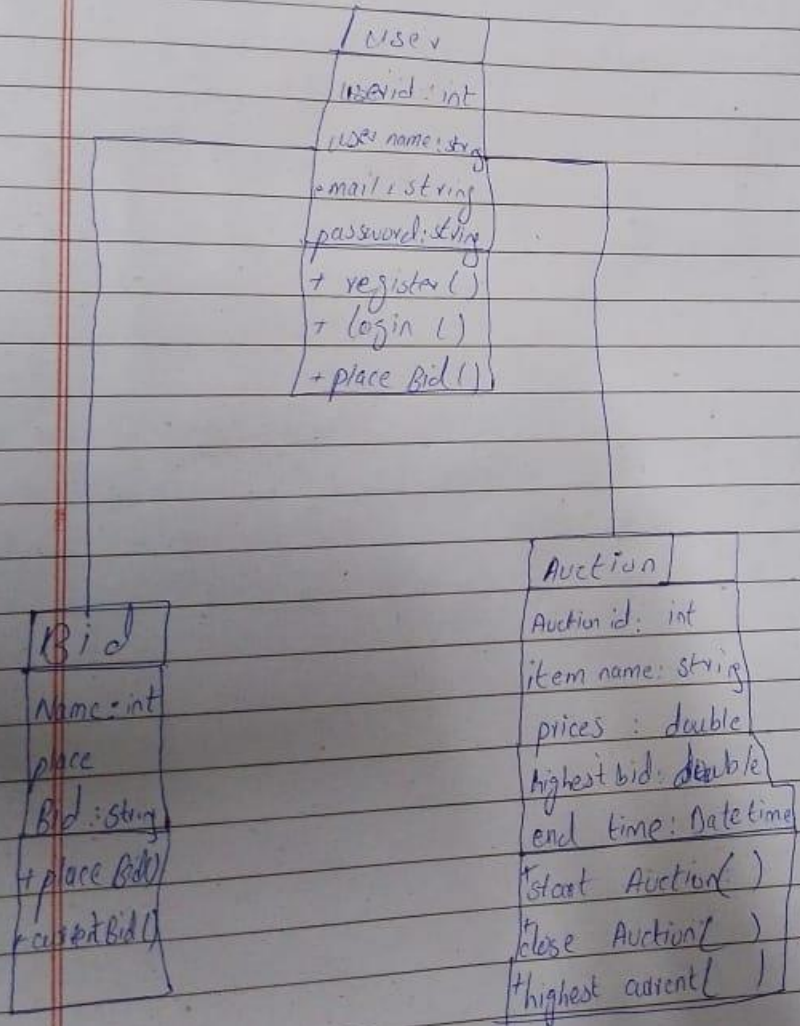 User
userid : int
user name : strg
email : string
password : string
+ register ( )
+ login ( )
+ place Bid ( )
Bid
Name : int
place
Bid : string
+ place Bid()
Bid ( )
Auction
Auction id : int
item name : string
prices : double
highest bid : double
end time : Datetime
+ start Auction( )
+ close Auction( )
+ highest ( )